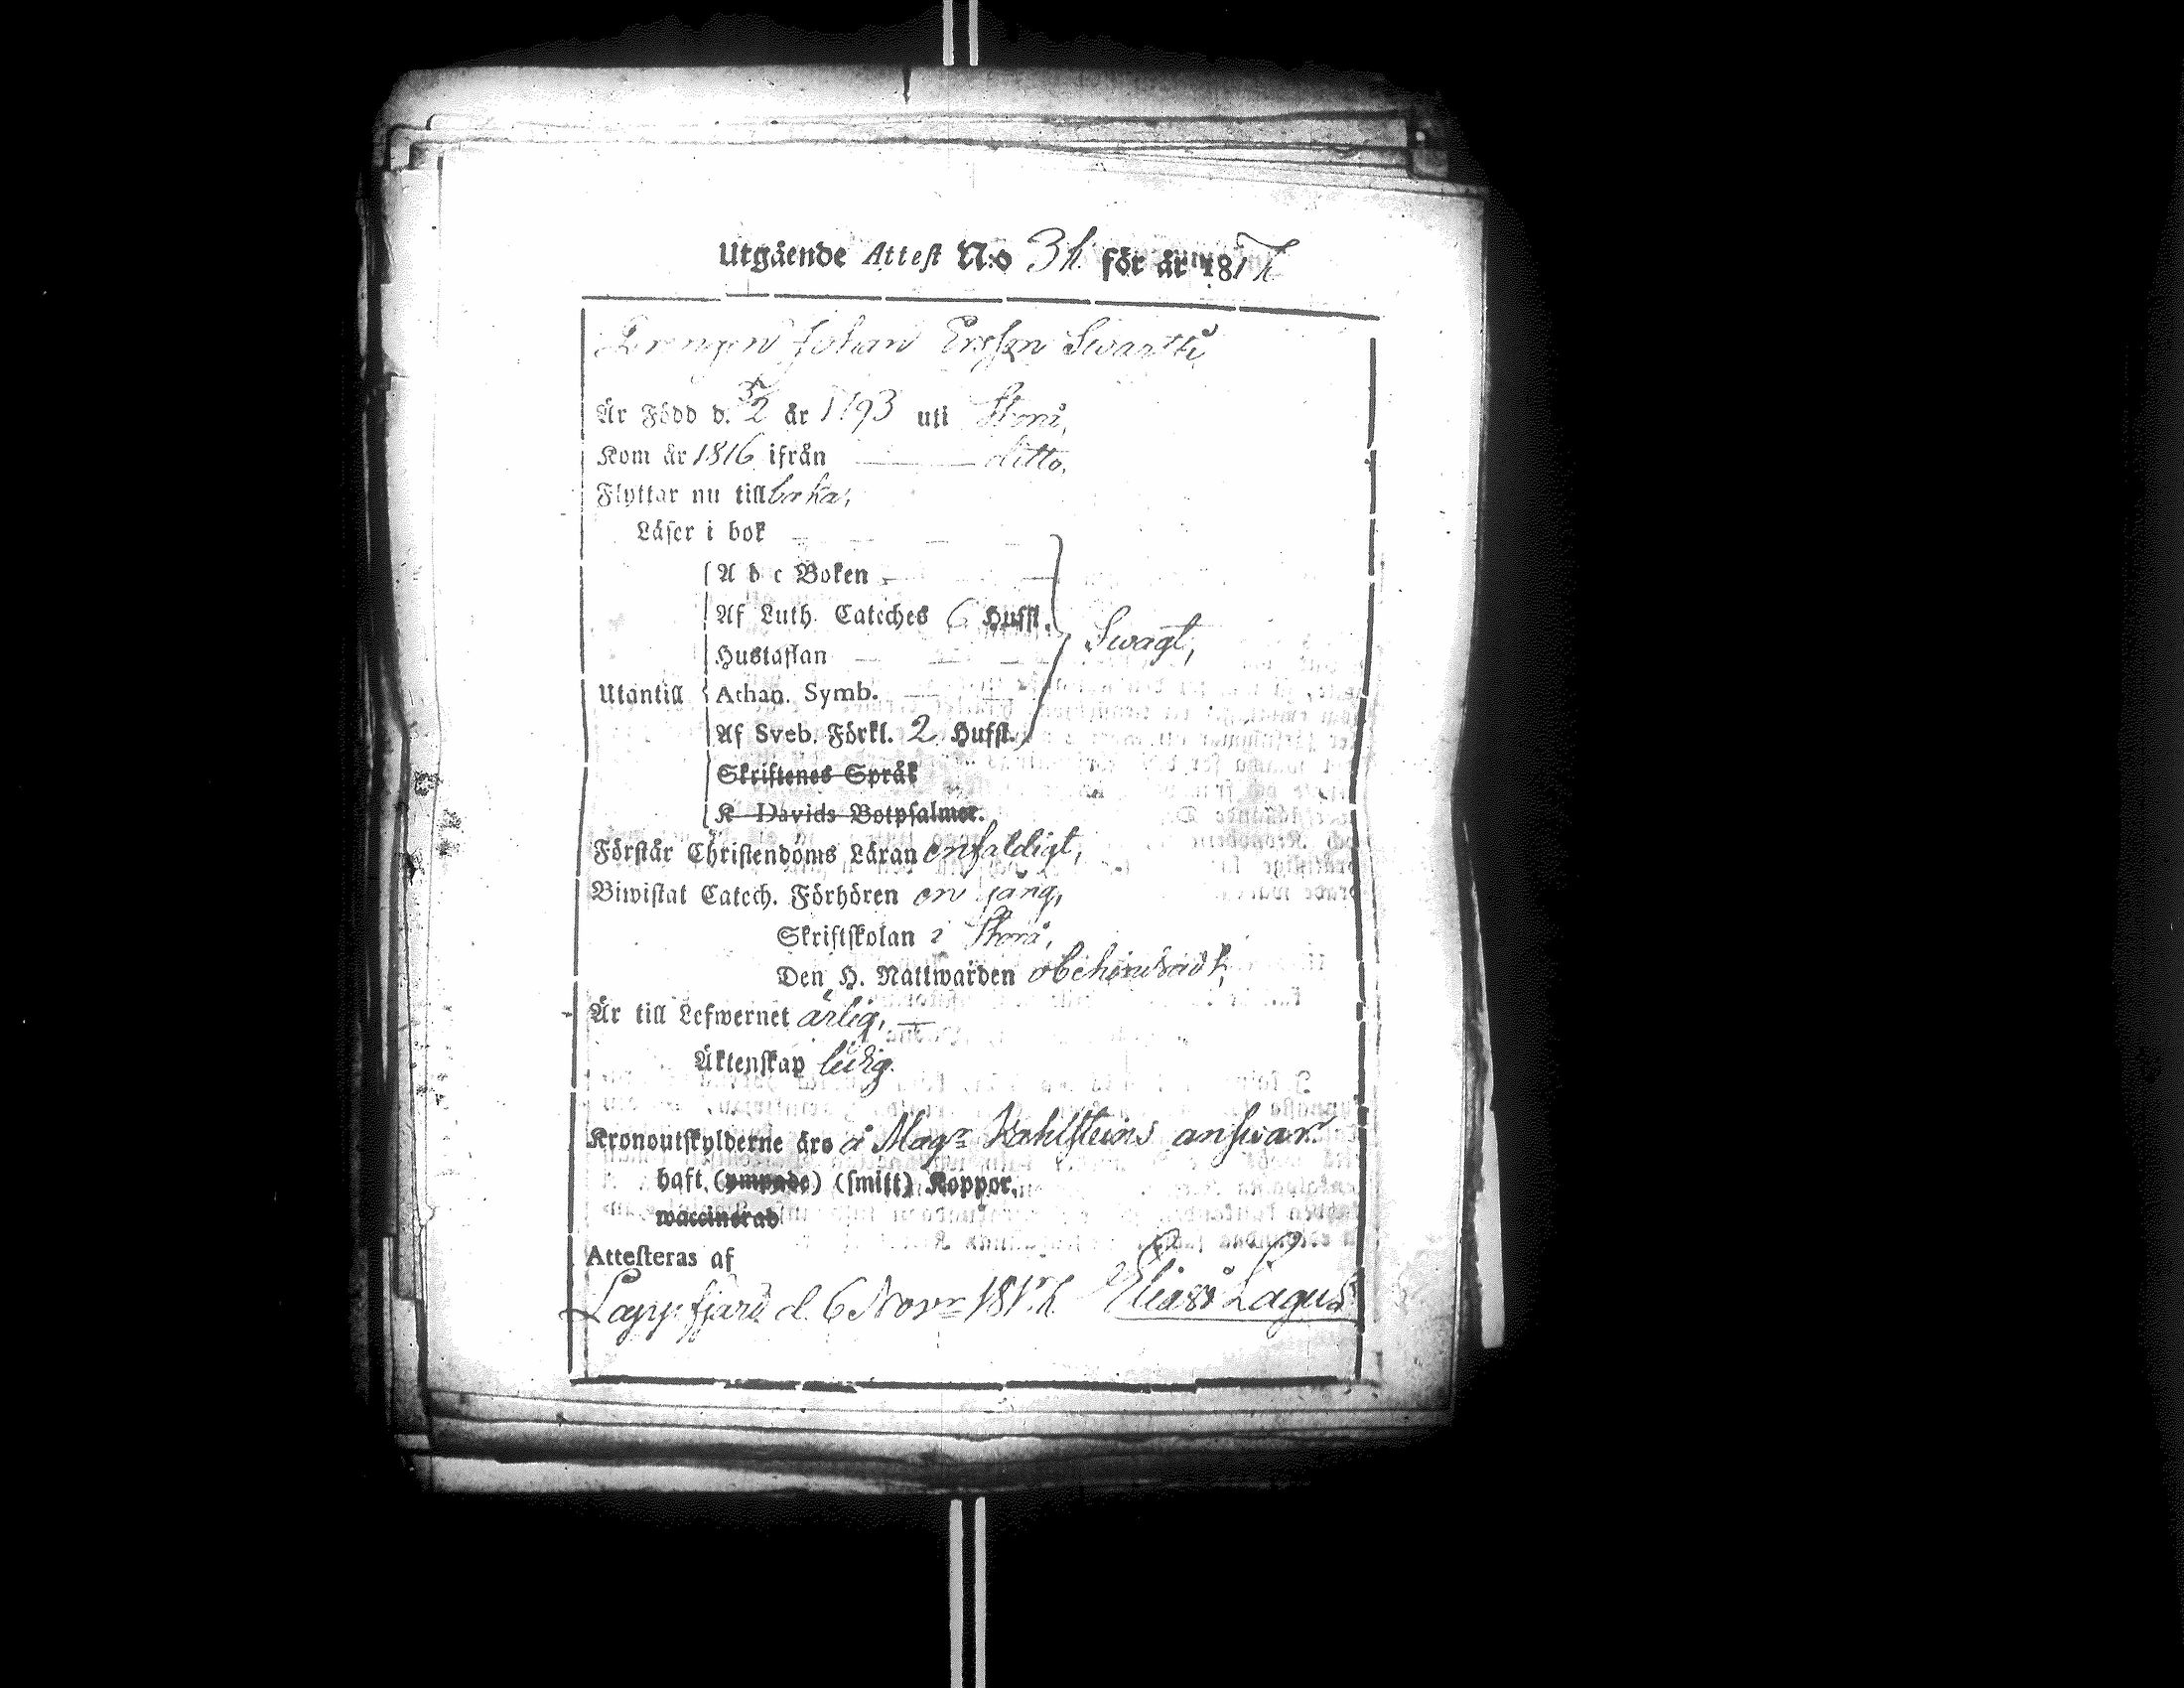 Utgående Attest N:o 34. för år 1817
Drengen Johan Ersson Swartti
Är Född d. 5/2 år 1793 uti Storå,
Kom år 1816 ifrån — ditto.
Flyttar nu till
Läser i bok — — — —
A b c Boken — —
Af Luth. Cateches 6 Hufst.
Swagt,
Hustaflan — — —
Utantill Athan. Symb. — —
Af Sveb. Förkl. 2 Hufst.
Skriftenes Språk
K Davids Botpsalmer.
Förstår Christendoms Läran enfaldigt,
Biwistat Catech. Förhören en gång,
Skriftskolan i Storå,
Den H. Nattwarden obehindradt,
Är till Lefwernet ärlig, —
Äktenskap ledig.
Kronoutskylderne äro å Magr Wahlsteins answar.
haft (ympade) (smitt) Koppor,
waccinerad
Attesteras af
Lappfjärd d. 6 Novr 1817. Elias Lagus